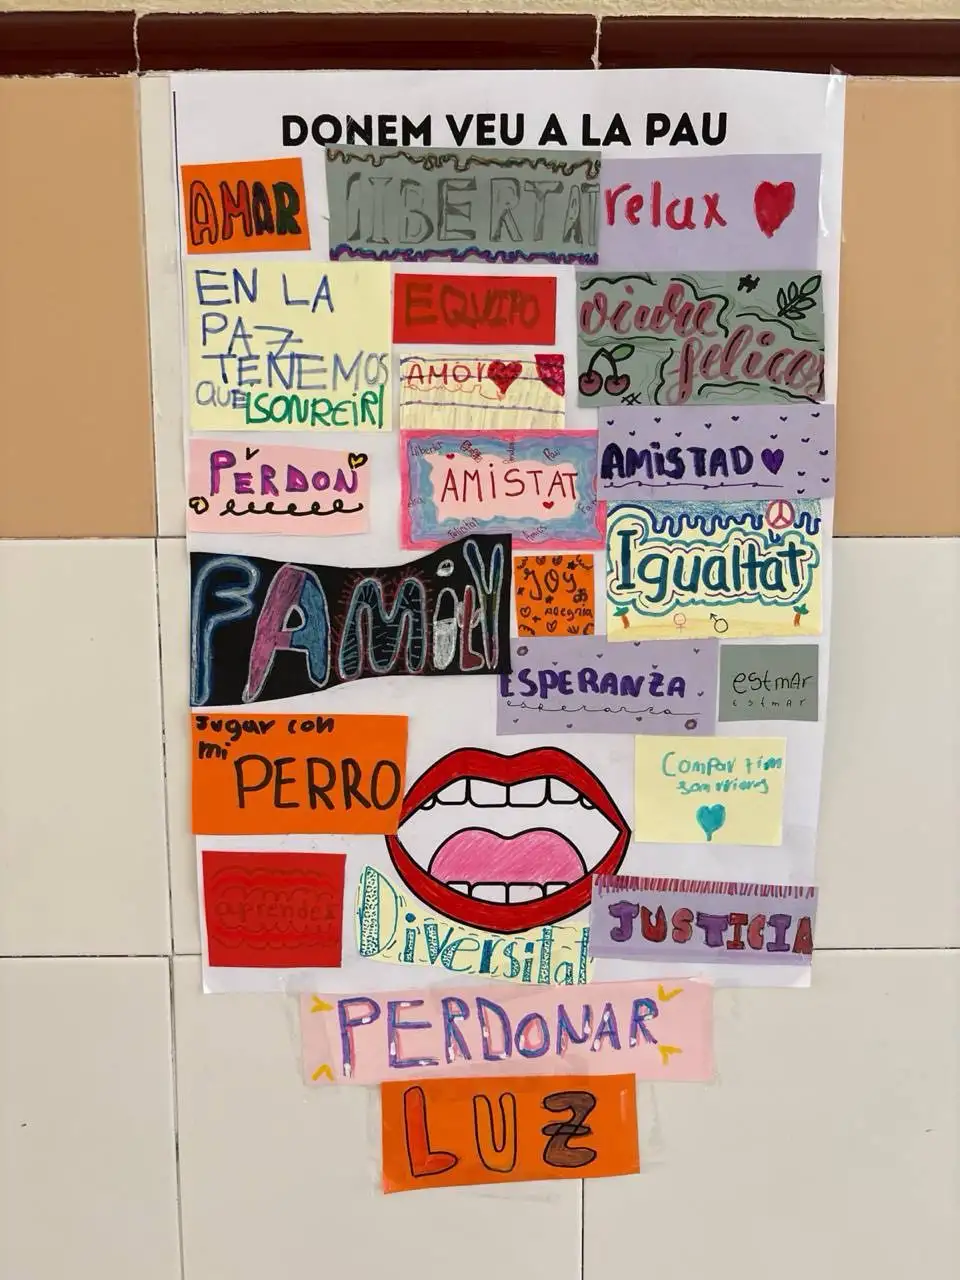 DONEM VEU A LA PAU
AMAR
LLIBERTAT
relax
EN LA
PAZ
TENEMOS
QUE ¡SONREIR!
EQUIPO
viure
feliços
AMOR
amor
PERDON
AMISTAT
Felicitat
Amics
AMISTAD
Igualtat
FAMILY
JOY
Alegria
ESPERANZA
esperanza
estmar
estmar
Jugar con
mi
PERRO
Compartim
somriures
aprender
Diversitat
JUSTICIA
PERDONAR
LUZ